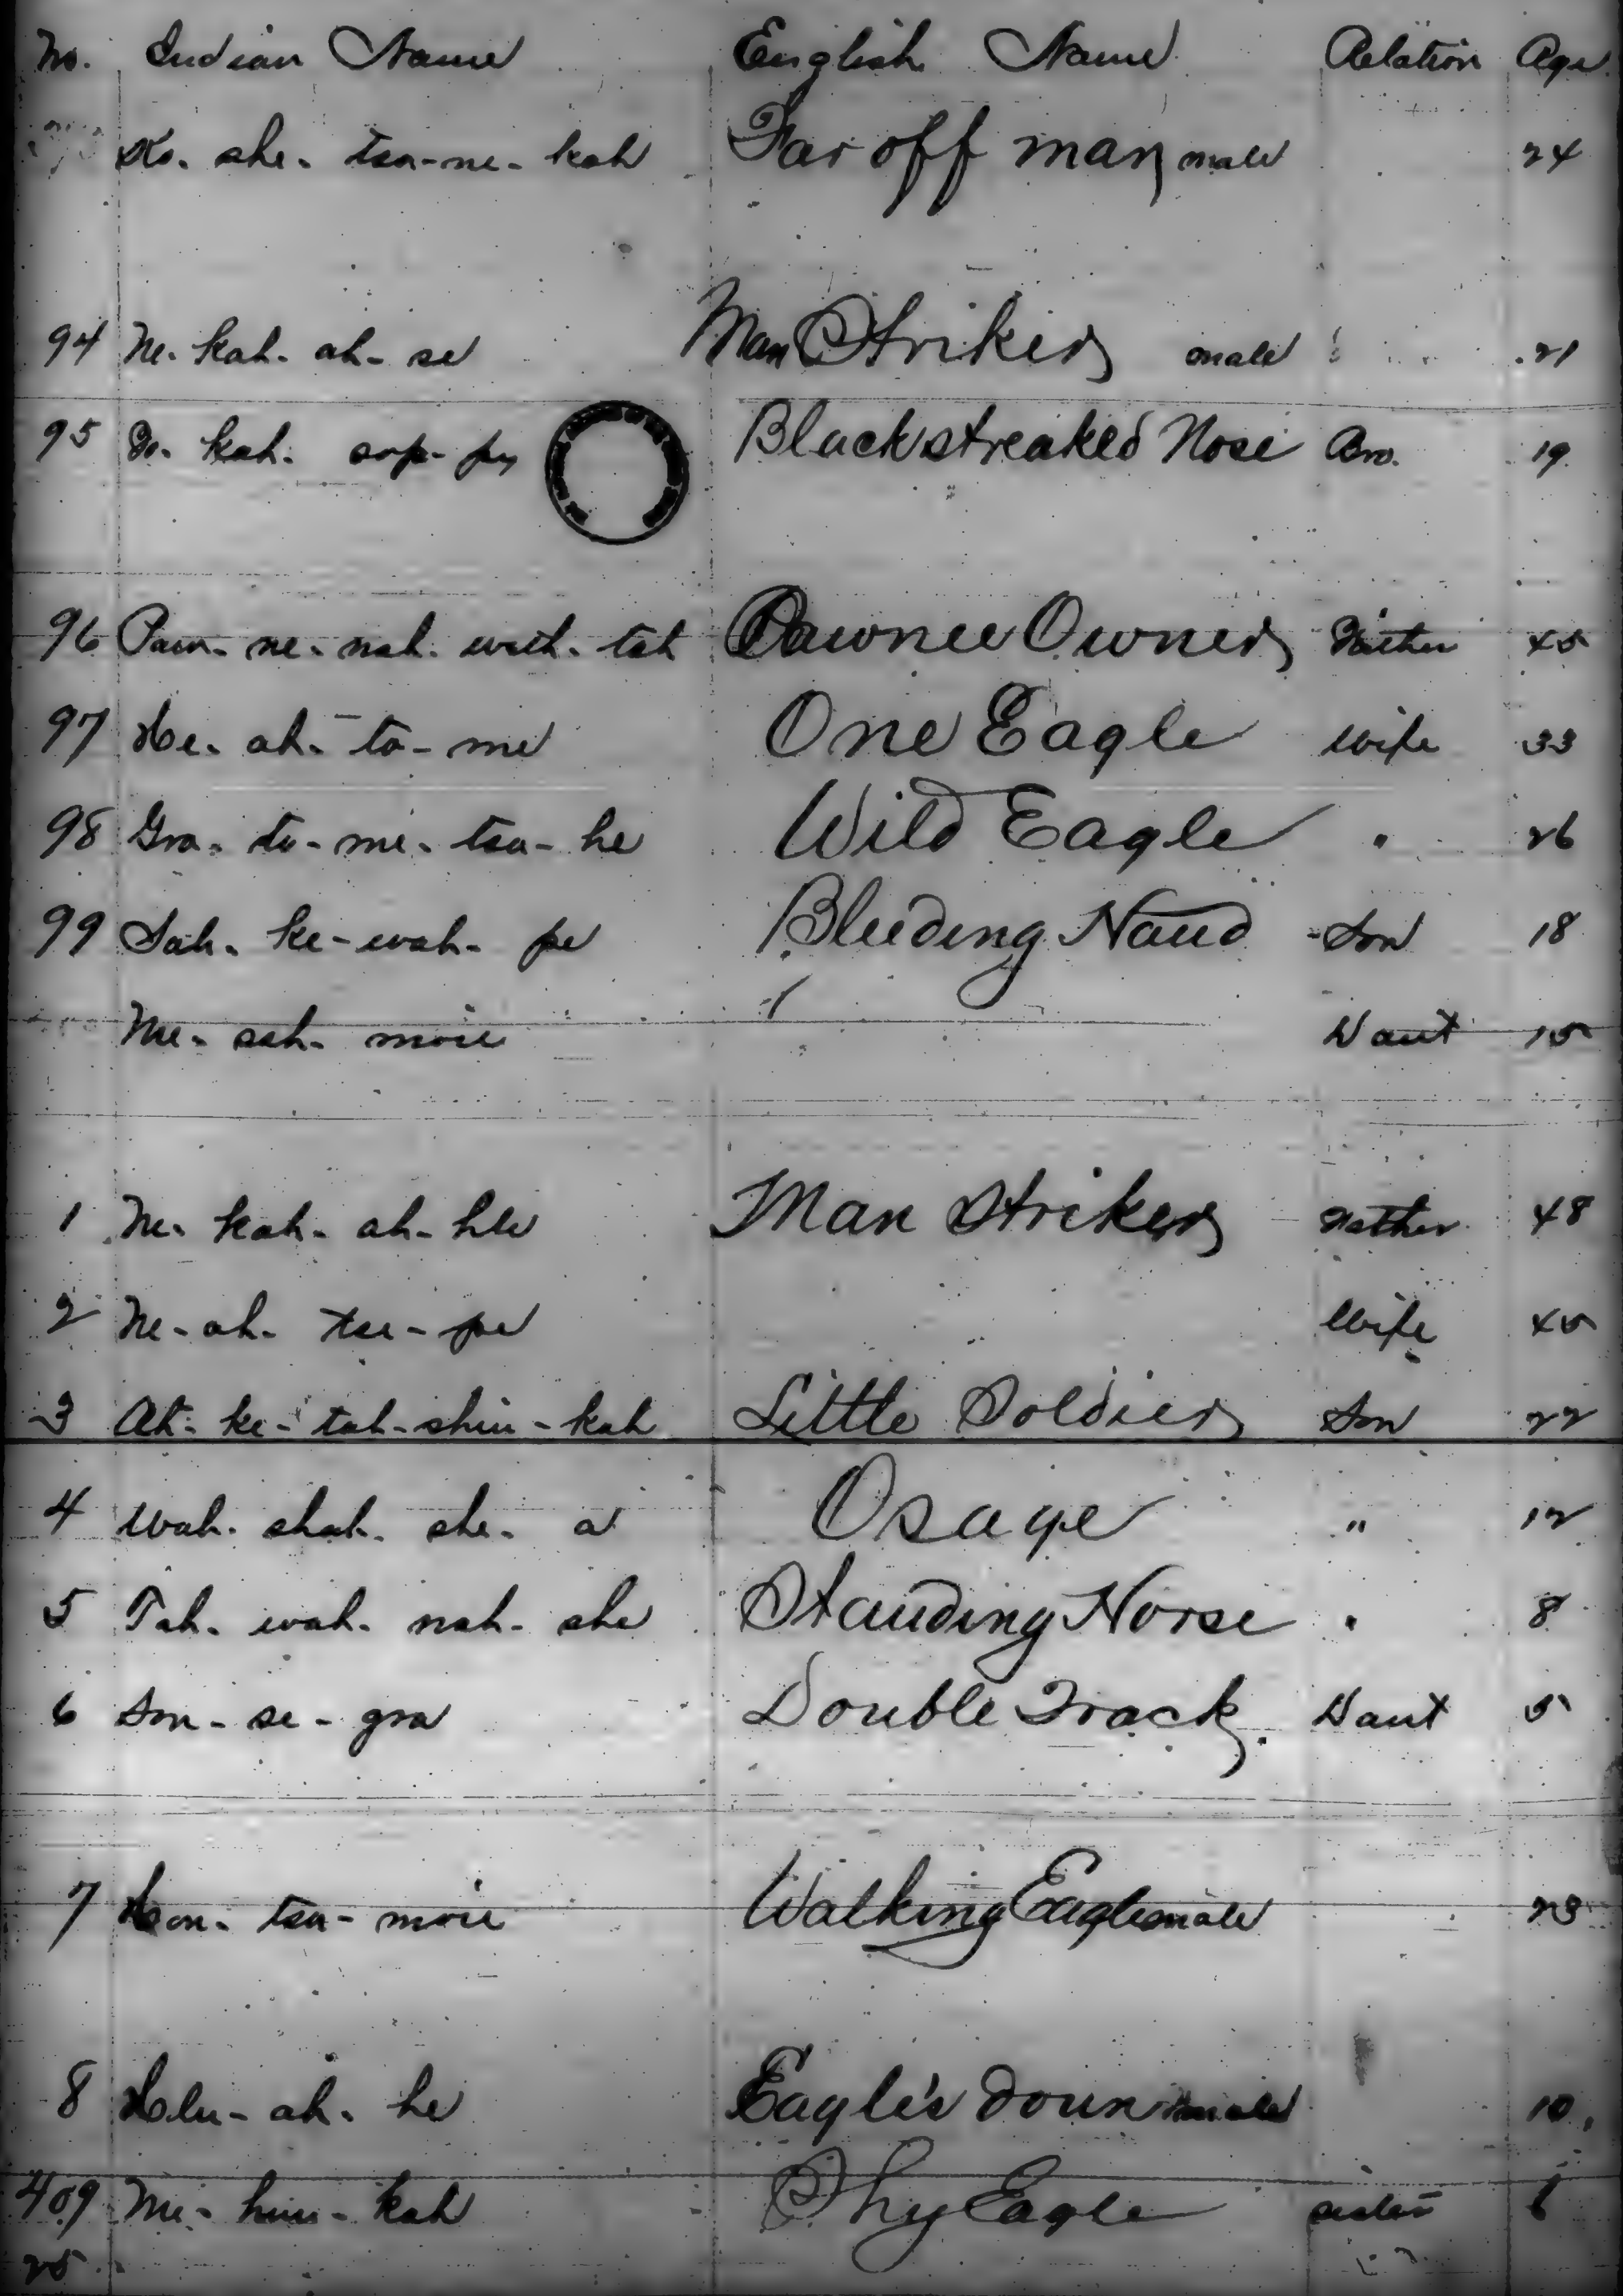 No. Indian Name English Name Relation Age
Ko. she. tsa-ne-kah Far off man male 24
94 Ne. kah. ah- se Man Striker male 21
95 kah. sop- py Black streaked Nose Bro. 19
96 Paw- ne. nah. wah. tah Pawnee Owner Father 45
97 He. ah. to- me One Eagle Wife 33
98 Gra. to- me. tsa- he Wild Eagle " 26
99 Sah. ke-wah- pe Bleeding Hand Son 18
Me- sah- moie Daut 15
1 Ne. kah- ah- hle Man Striker Father 48
2 Ne-ah- tse-pe Wife 45
3 Ah- ke- tah-shin-kah Little Soldier Son 22
4 Wah. shah. she. a Osage " 12
5 Tah. wah. nah. she Standing Horse " 8
6 Son- se- gra Double Track Daut 5
7 Hon- tsa- moie Walking Eagle male 23
8 Hlu- ah. he Eagle's Down male 10
409 Me- hun- kah Shy Eagle sister 6
25